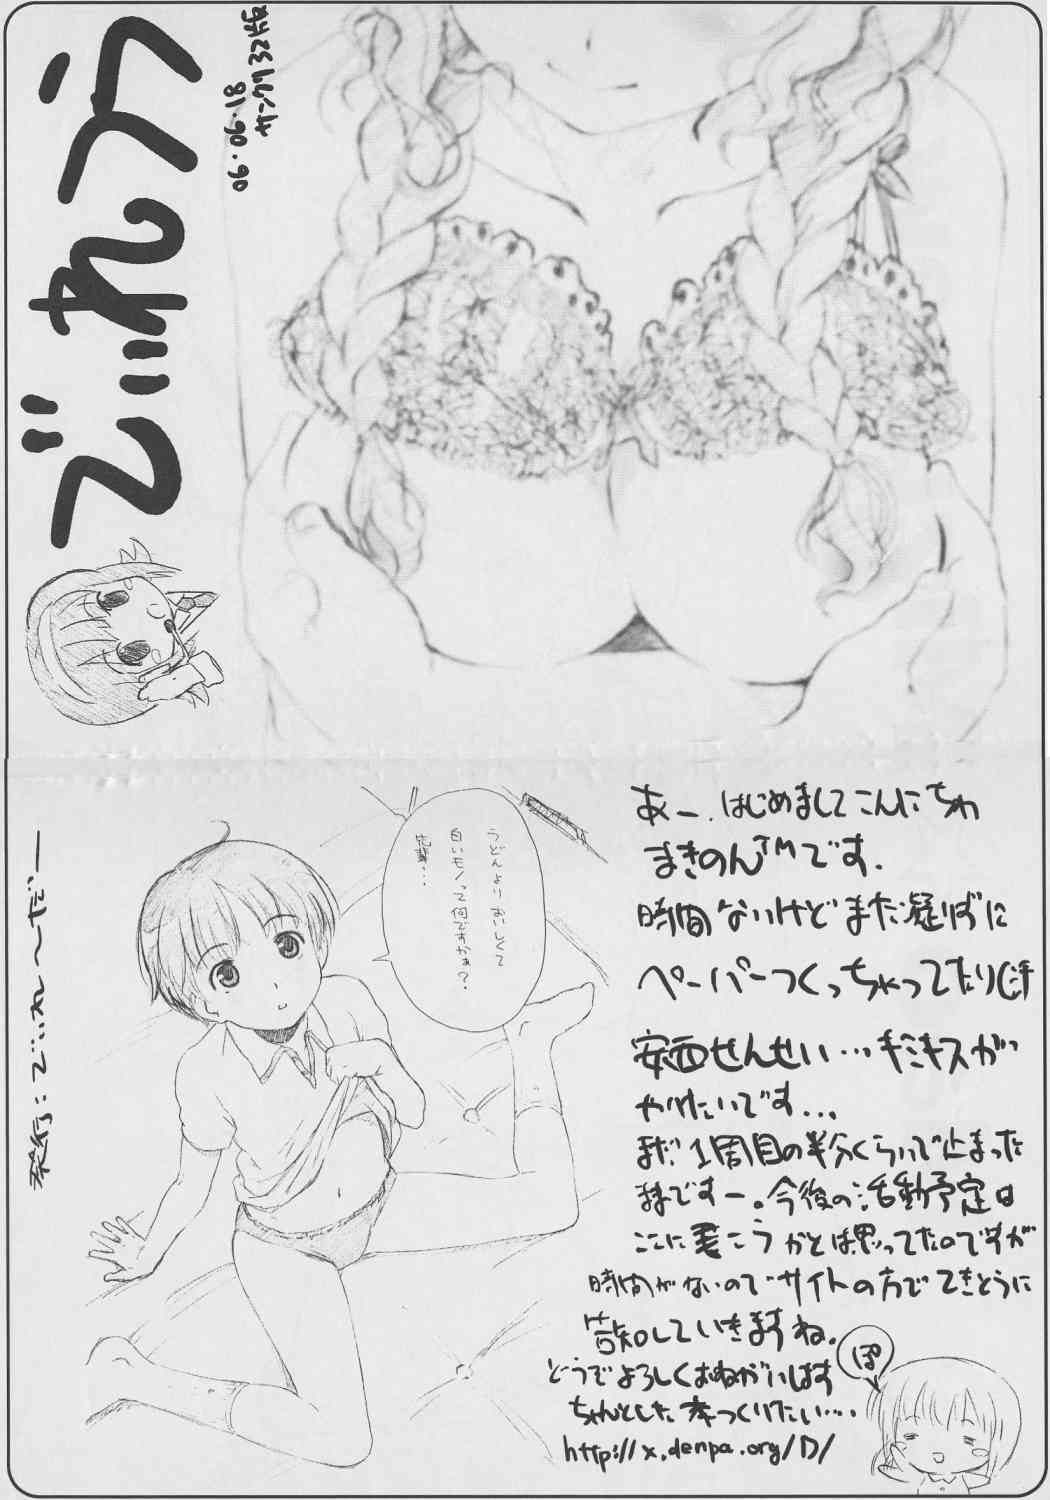 でいれう
06.06.18
サンクリ32版
うどんより おいしくて
白いモノって何ですかぁ?
先輩・・
発行:でいれ〜だー
あー.はじめましてこんにちわ
まきのん™です.
時間ないけどまた凝りずに
ペーパーつくっちゃってたり(汗
安西せんせい…キミキスがっ
やりたいです...
まだ1周目の半分くらいで止まった
ままですー。今後の活動予定は
ここに書こうかとは思ってたのですが
時間がないのでサイトの方でてきとうに
告知していきますね.
どうぞよろしくおねがいします
ちゃんとした本つくりたい….
http://x.denpa.org/D/
ぽ